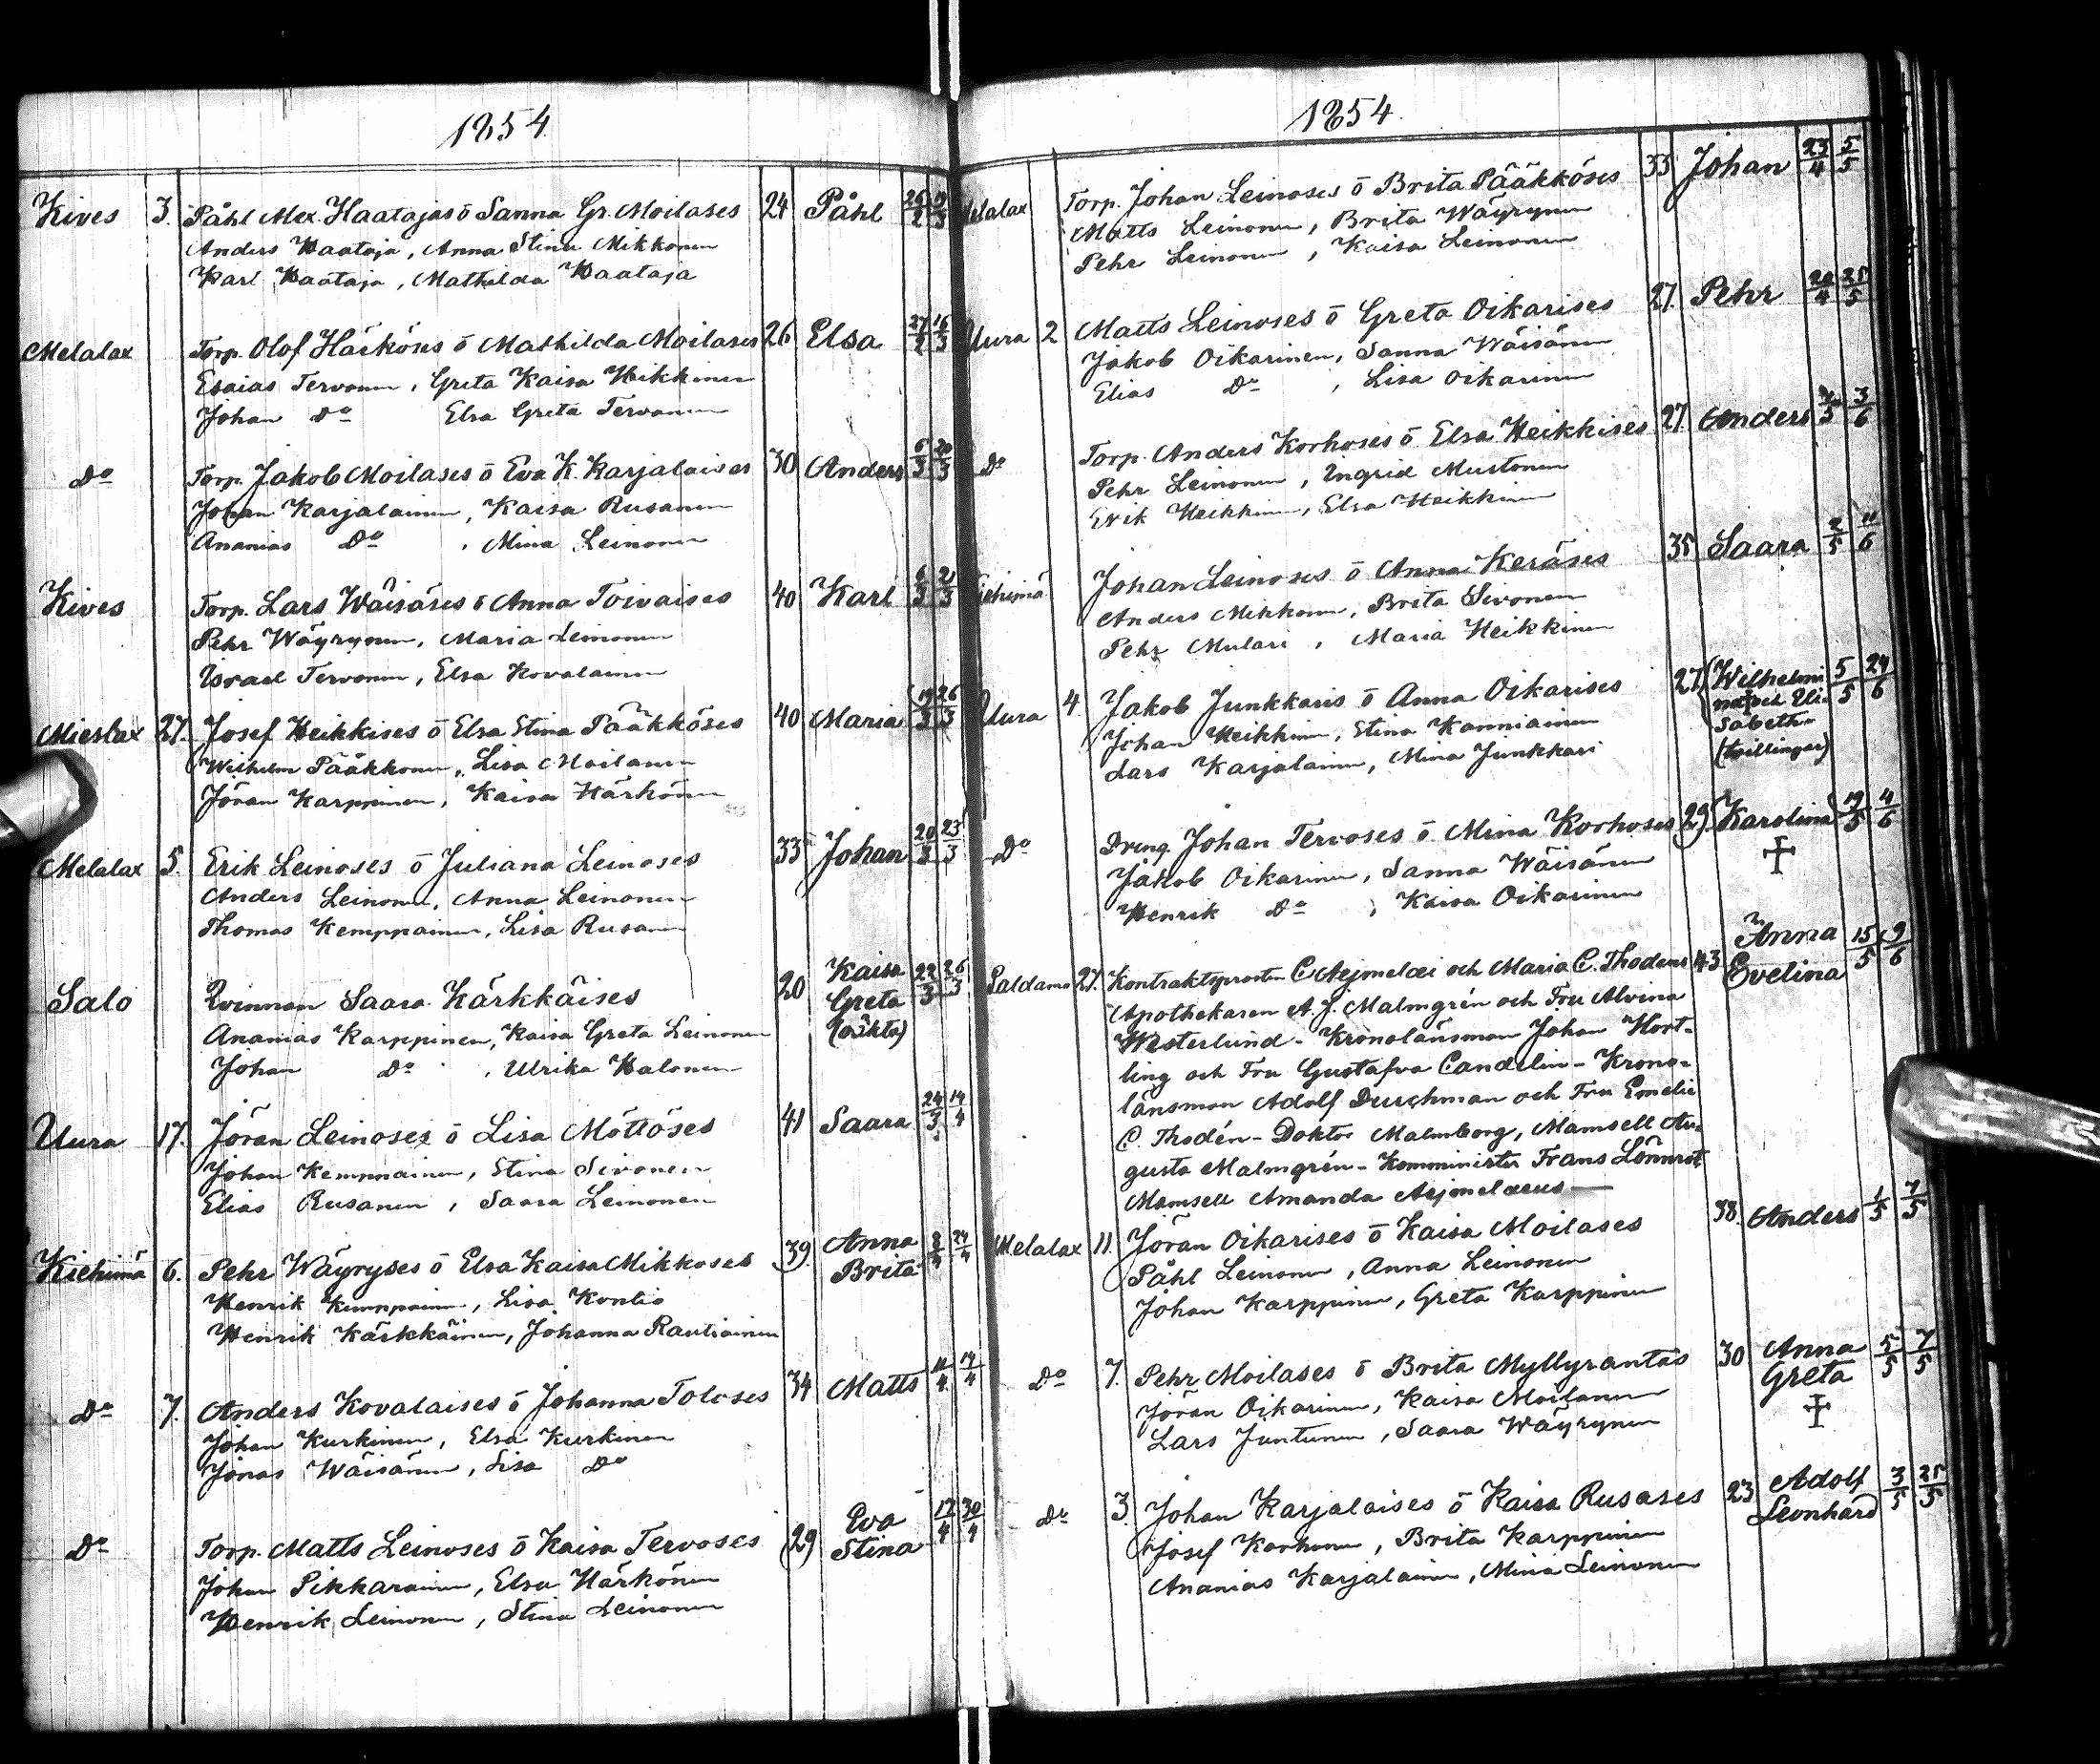 1854
Kives 3. Påhl Alex. Haatajas ō Sanna Gr. Moilases 24 Påhl 26/2 19/3
Anders Haataja, Anna Stina Mikkonen
Karl Haataja, Mathilda Haataja
Melalax Torp. Olof Härköses ō Mathilda Moilases 26 Elsa 27/2 16/3
Esaias Tervonen, Greta Kaisa Heikkinen
Johan Do Elsa Greta Tervonen
Do Torp. Jakob Moilases ō Eva K. Karjalaises 30 Anders 6/3 20/3
Johan Karjalainen, Kaisa Rusanen
Ananias Do, Mina Leinonen
Kives Torp. Lars Wäisäses ō Anna Toivaises 40 Karl 6/3 21/3
Pehr Wäyrynen, Maria Leinonen
Israel Tervonen, Elsa Kovalainen
Mieslax 27. Josef Heikkises ō Elsa Stina Pääkköses 40 Maria 19/3 26/3
Wilhelm Pääkkonen, Lisa Moilanen
Jöran Karppinen, Kaisa Härkönen
Melalax 5. Erik Leinoses ō Juliana Leinoses 33 Johan 20/3 23/3
Anders Leinonen, Anna Leinonen
Thomas Kemppainen, Lisa Rusanen
Salo Qvinnan Saara Kärkkäises 20 Kaisa Greta (oäkta) 22/3 26/3
Ananias Karppinen, Kaisa Greta Leinonen
Johan Do, Ulrika Halonen
Uura 17. Jöran Leinoses ō Lisa Möttöses 41 Saara 24/3 14/4
Johan Kemppainen, Stina Sivonen
Elias Rusanen, Saara Leinonen
Kiehimä 6. Pehr Wäyryses ō Elsa Kaisa Mikkoses 39. Anna Brita 24/4
Henrik Kemppainen, Lisa Kontio
Henrik Kärkkäinen, Johanna Rautiainen
Do 7. Anders Kovalaises ō Johanna Toloses 34 Matts 11/4 14/4
Johan Kurkinen, Elsa Kurkinen
Jonas Wäisänen, Lisa Do
Do Torp. Matts Leinoses ō Kaisa Tervoses 29 Eva Stina 17/4 30/4
Johan Pikkarainen, Elsa Härkönen
Henrik Leinonen, Stina Leinonen
1854.
Melalax Torp. Johan Leinoses ō Brita Pääkköses 33 Johan 23/4 5/5
Matts Leinonen, Brita Wäyrynen
Pehr Leinonen, Kaisa Leinonen
Uura 2 Matts Leinoses ō Greta Oikarises 27. Pehr 24/4 25/5
Jakob Oikarinen, Sanna Wäisänen
Elias Do, Lisa Oikarinen
Do Torp. Anders Korhoses ō Elsa Heikkises 27. Anders 3/6
Pehr Leinonen, Ingrid Mustonen
Erik Heikkinen, Elsa Heikkinen
Kiehimä Johan Leinoses ō Anna Keräses 35 Saara 2/5 11/6
Anders Mikkonen, Brita Sivonen
Pehr Mulari, Maria Heikkinen
Uura 4. Jakob Junkkaris ō Anna Oikarises 27. Wilhelmina och Elisabeth (tvillingar) 5/5 24/6
Johan Heikkinen, Stina Kanniainen
Lars Karjalainen, Mina Junkkari
Do Dreng. Johan Tervoses ō Mina Korhoses 29. Karolina 19/5 4/6
Jakob Oikarinen, Sanna Wäisänen
Henrik Do, Kaisa Oikarinen
Paldamo 27. Kontraktsprosten C. Aejmelæi och Maria C. Thodens 43 Anna Evelina 15/5 9/6
Apothekaren A. J. Malmgrén och Fru Alvina
Westerlund - Kronolänsman Johan Hort-
ling och Fru Gustafva Candelin - Krono-
länsman Adolf Durchman och Fru Emelie
C. Thodén - Doktor Malmborg, Mamsell Au-
gusta Malmgrén - Komminister Frans Lönnrot,
Mamsell Amanda Aejmelaeus
Melalax 11. Jöran Oikarises ō Kaisa Moilases 38. Anders 1/5 7/5
Påhl Leinonen, Anna Leinonen
Johan Karppinen, Greta Karppinen
Do 7. Pehr Moilases ō Brita Myllyrantas 30 Anna Greta 5/5 7/5
Jöran Oikarinen, Kaisa Moilanen
Lars Juntunen, Saara Wäyrynen
Do 3. Johan Karjalaises ō Kaisa Rusases 23 Adolf Leonhard 3/5 25/5
Josef Korhonen, Brita Karppinen
Ananias Karjalainen, Mina Leinonen